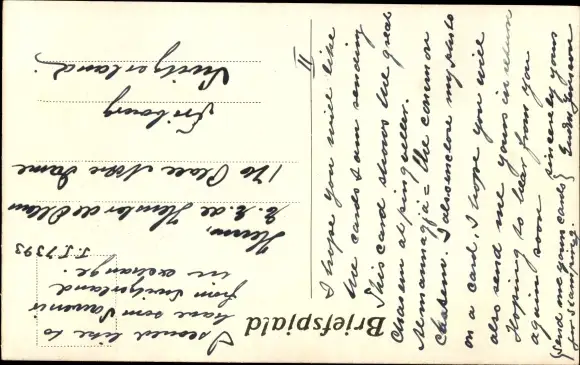 Bríefspjald
I would like to
have som Souvenir
from Switzerland
in exchange.
I.I 7393
Herrn,
170 Place Notre Dame
Fribourg
Switzerland.
II
I hope you will like
the cards I am sending
This card shows the great
chasem at þingvellir.
Almannagjá = the common
chasem. I also enclose my photo
on a card, I hope you will
also send me yours in return
Hoping to hear from you
again soon
sincerely yours
(send me your cards)
for stamping.